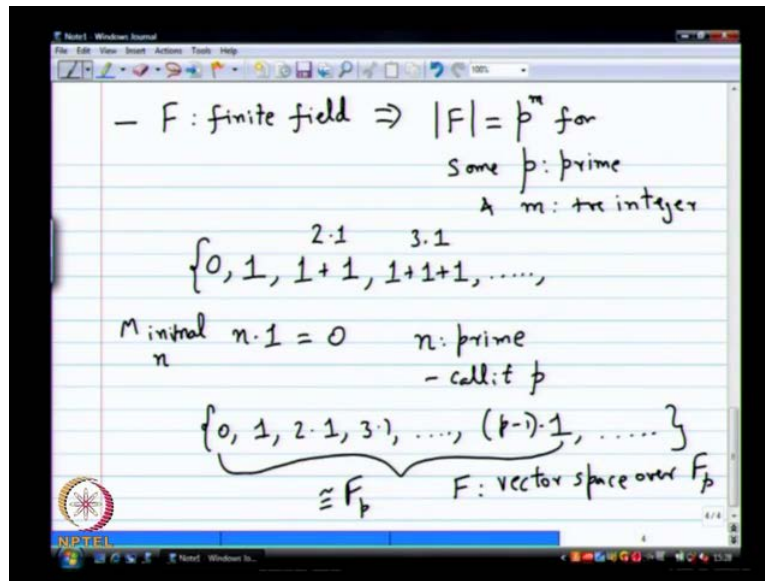 Note1 - Windows Journal
File Edit View Insert Actions Tools Help
100%
— F : finite field ⇒ |F| = p^m for
some p : prime
& m : +ve integer
2·1 3·1
{0, 1, 1 + 1, 1+1+1, .....,
Minimal n·1 = 0 n : prime
n - call it p
{0, 1, 2·1, 3·1, ...., (p-1)·1, ..... }
≅ F_p F : vector space over F_p
4/4
NPTEL
4
Note1 - Windows Jo...
15:28